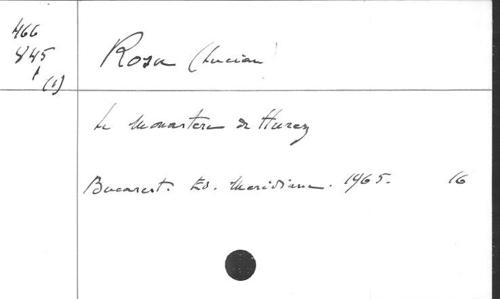 466
445
(1)
Rosu (Lucian)
Le Monastere de Hurez
Bucarest. Ed. Meridiane. 1965. 16